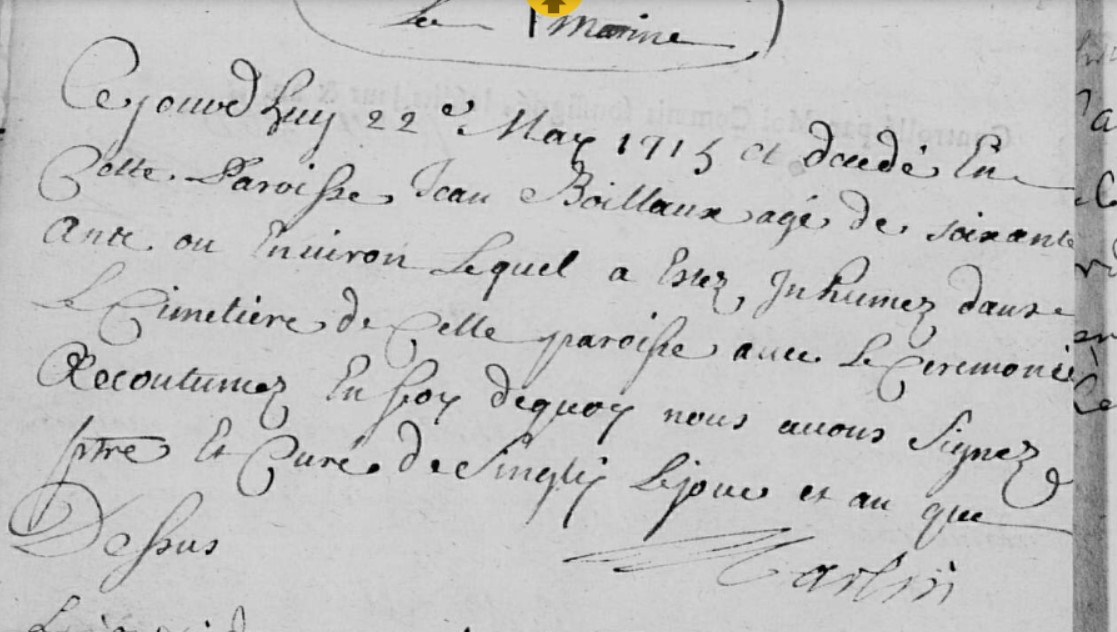 marine
Cejourd huy 22e May 1715 et décédé En
Cette Paroisse Jean Boillaux agé de soixante
Ante ou Environ Lequel a Estez Inhumez dans
Le Cimetiere de Cette paroisse avec Le Ceremonie
Accoutumez En foy dequoy nous avons Signez
ptre Et Curé de Singly Lejour et an que
Dessus Martin